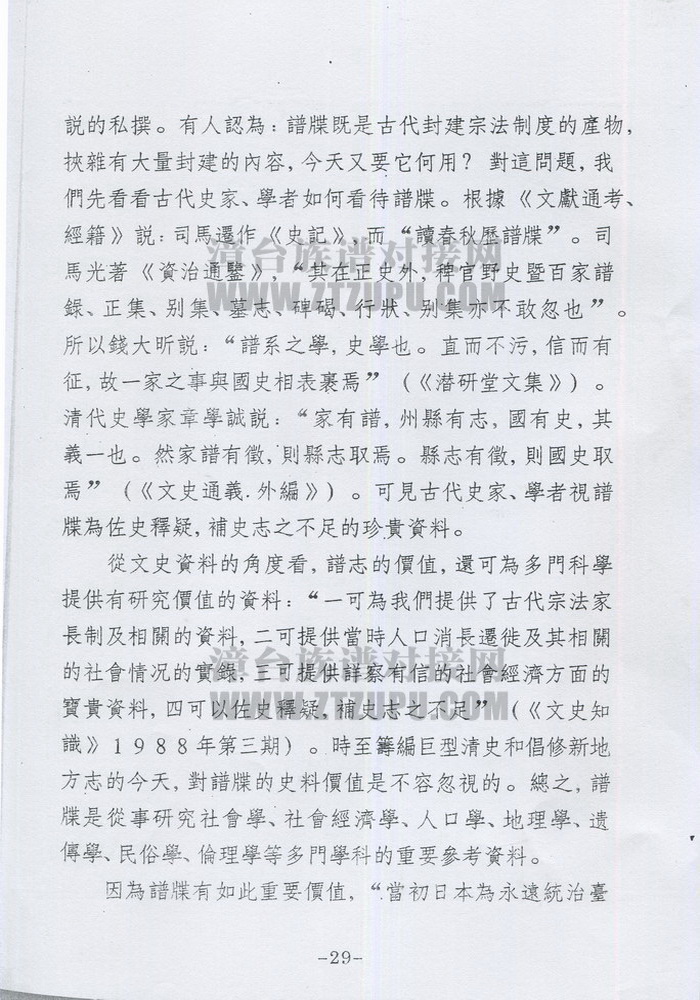 説的私撰。有人認為：譜牒既是古代封建宗法制度的產物，
挾雜有大量封建的內容，今天又要它何用？對這問題，我
們先看看古代史家、學者如何看待譜牒。根據《文獻通考、
經籍》説：司馬遷作《史記》，而“讀春秋曆譜牒”。司
馬光著《資治通鑒》，“其在正史外，稗官野史暨百家譜
錄、正集、别集、墓志、碑碣、行狀、别集亦不敢忽也”。
所以錢大昕説：“譜系之學，史學也。直而不污，信而有
征，故一家之事與國史相表裏焉”（《潜研堂文集》）。
清代史學家章學誠説：“家有譜，州縣有志，國有史，其
義一也。然家譜有徵，則縣志取焉。縣志有徵，則國史取
焉”（《文史通義.外編》）。可見古代史家、學者視譜
牒為佐史釋疑，補史志之不足的珍貴資料。
從文史資料的角度看，譜志的價值，還可為多門科學
提供有研究價值的資料：“一可為我們提供了古代宗法家
長制及相關的資料，二可提供當時人口消長遷徙及其相關
的社會情况的實錄，三可提供詳察有信的社會經濟方面的
寶貴資料，四可以佐史釋疑，補史志之不足”（《文史知
識》1988年第三期）。時至籌編巨型清史和倡修新地
方志的今天，對譜牒的史料價值是不容忽視的。總之，譜
牒是從事研究社會學、社會經濟學、人口學、地理學、遺
傳學、民俗學、倫理學等多門學科的重要參考資料。
因為譜牒有如此重要價值，“當初日本為永遠統治臺
-29-
漳台族谱对接网
WWW.ZTZUPU.COM
漳台族谱对接网
WWW.ZTZUPU.COM